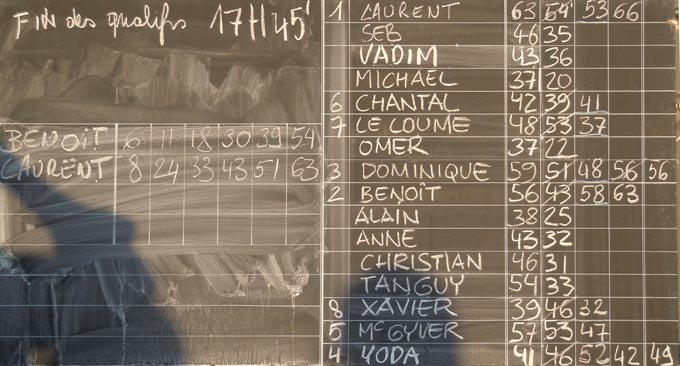 FIN des qualifs 17H45'
BENOIT 6 11 18 30 39 54
LAURENT 8 24 33 43 51 63
1 LAURENT 63 54 53 66
SEB 46 35
VADIM 43 36
MICHAEL 37 20
6 CHANTAL 42 39 41
7 LE LOUME 48 53 37
OMER 37 22
3 DOMINIQUE 59 51 48 56 56
2 BENOÎT 56 43 58 63
ALAIN 38 25
ANNE 43 32
CHRISTIAN 46 31
TANGUY 54 33
8 XAVIER 39 46 32
5 McGYVER 57 53 47
4 YODA 41 46 52 42 49